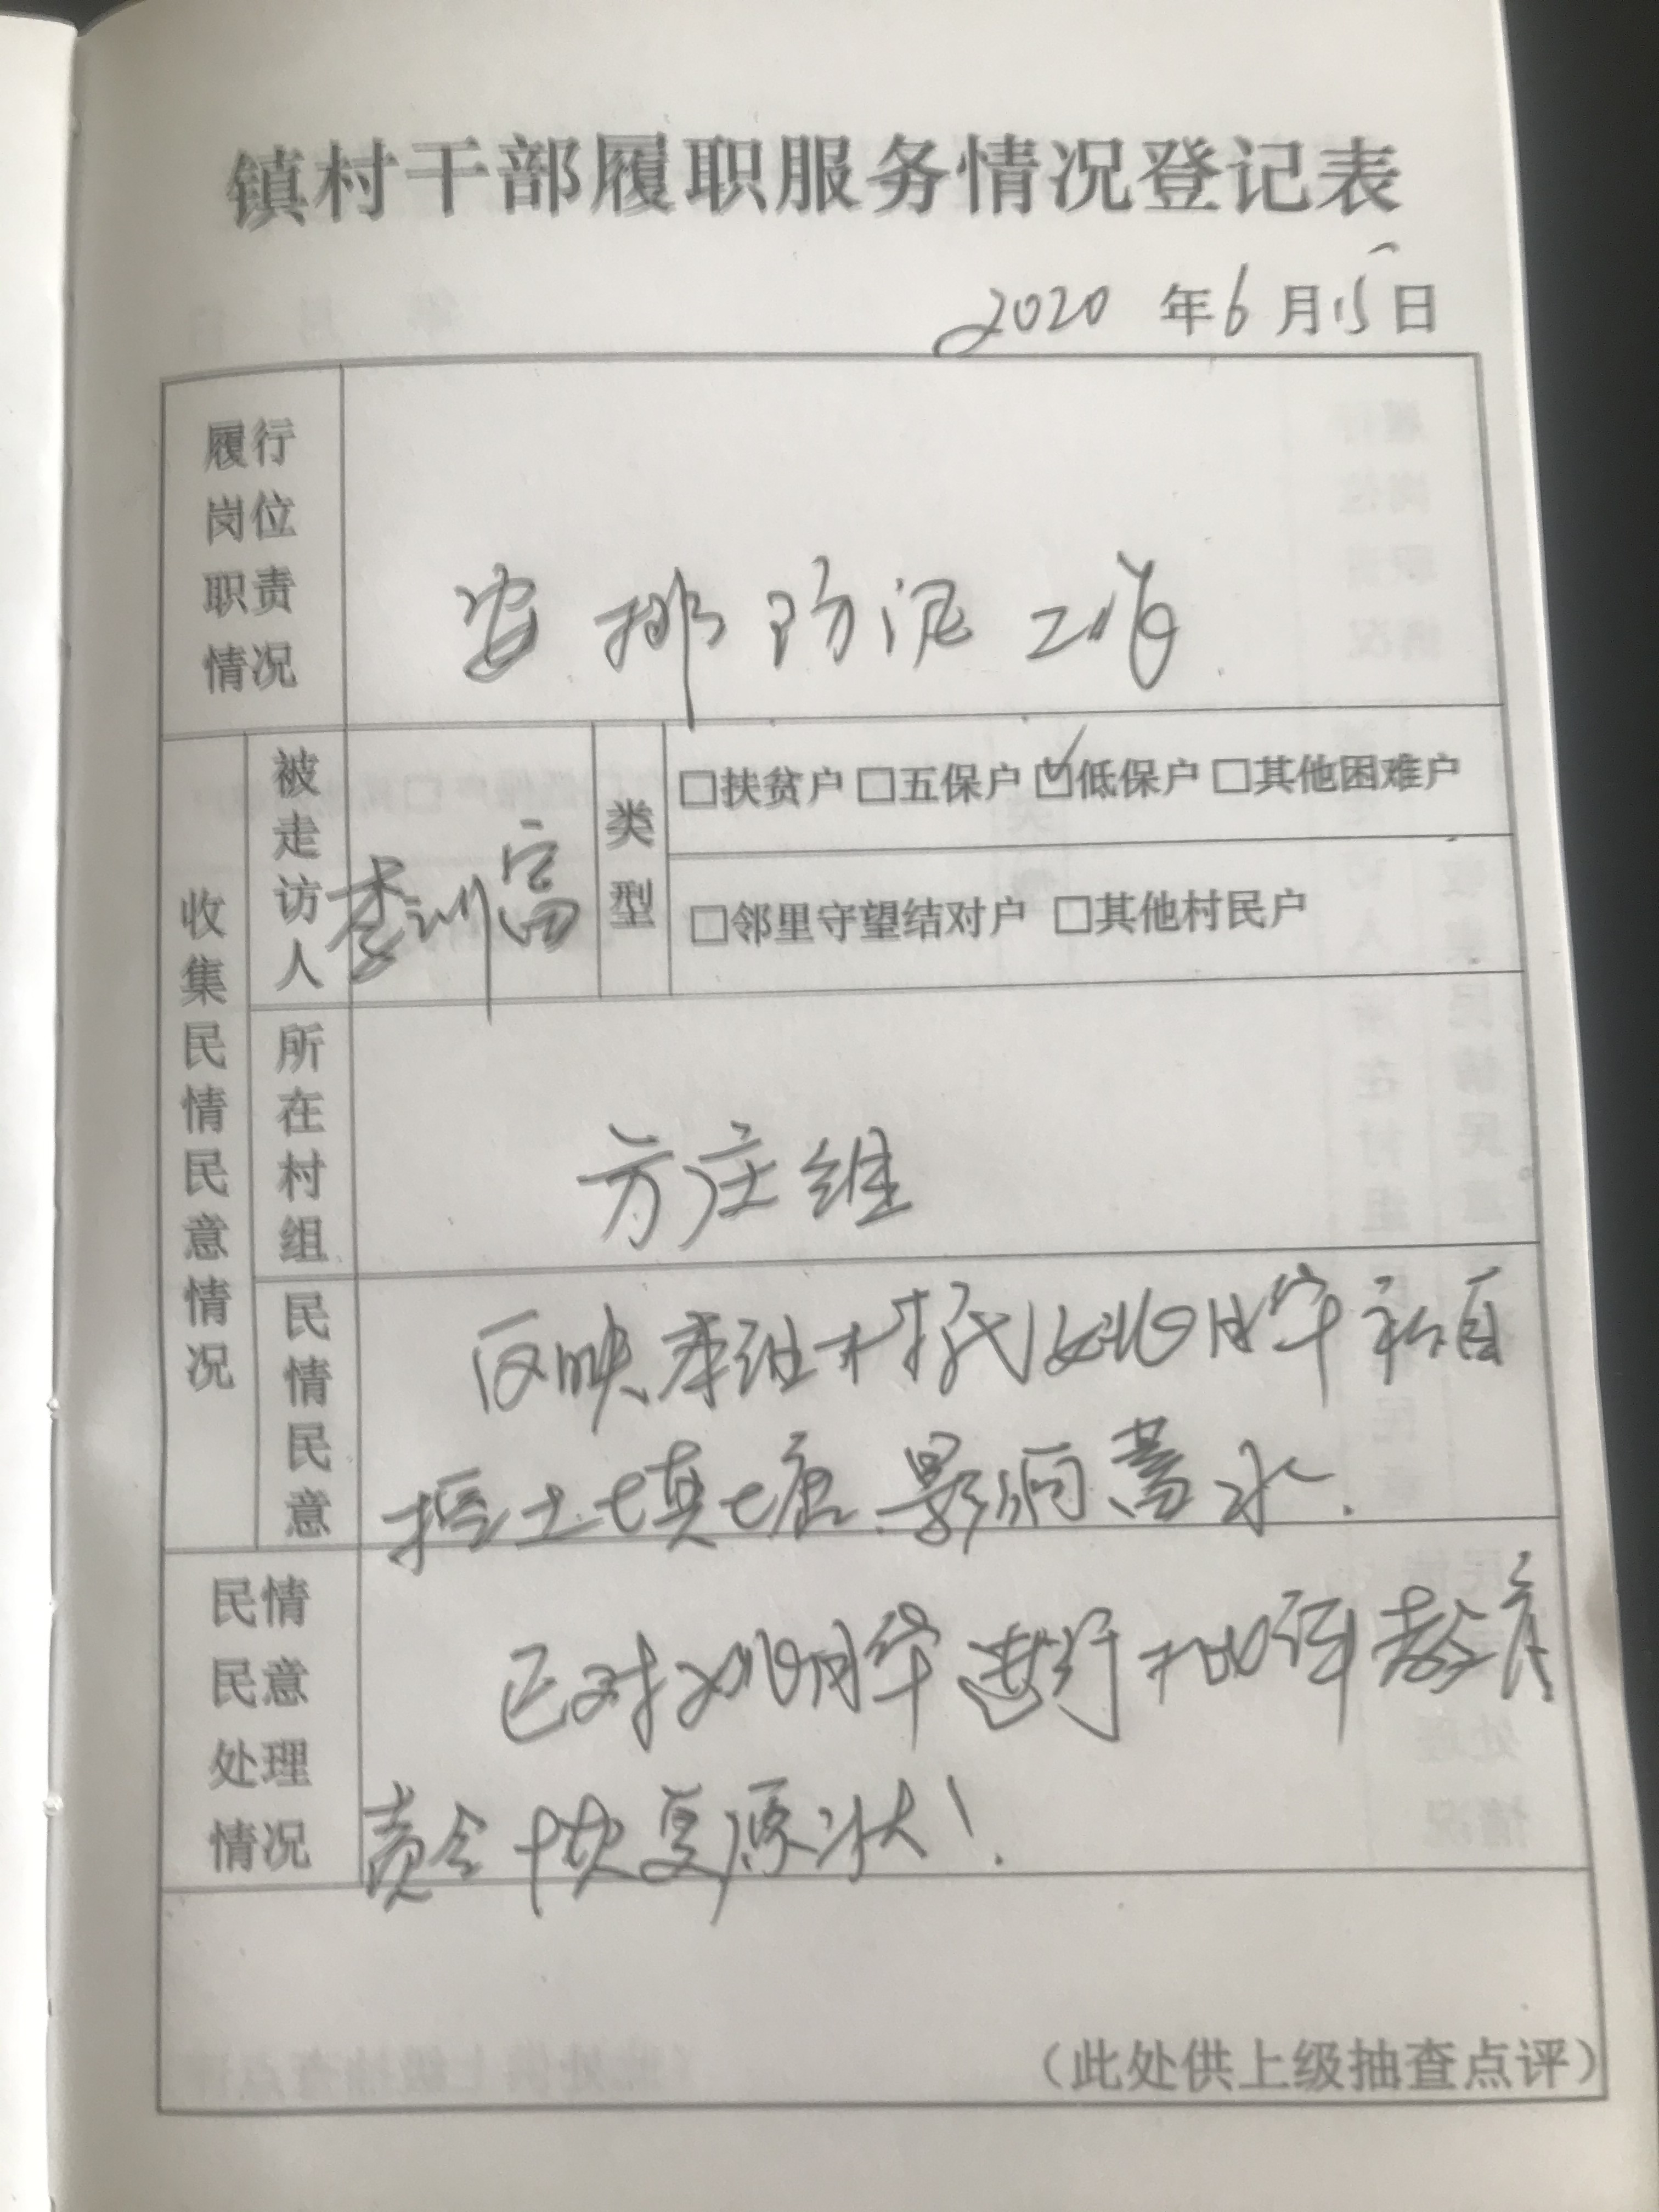 镇村干部履职服务情况登记表
2020年6月15日
履行
岗位
职责
情况
安排防汛工作
收集民情民意情况
被走访人
李训富
类型
□扶贫户 □五保户 ☑低保户 □其他困难户
□邻里守望结对户 □其他村民户
所在村组
方庄组
民情民意
反映本组村民姚明华私自
挖土填塘影响蓄水.
民情
民意
处理
情况
已对姚明华进行批评教育
责令恢复原状!
(此处供上级抽查点评)